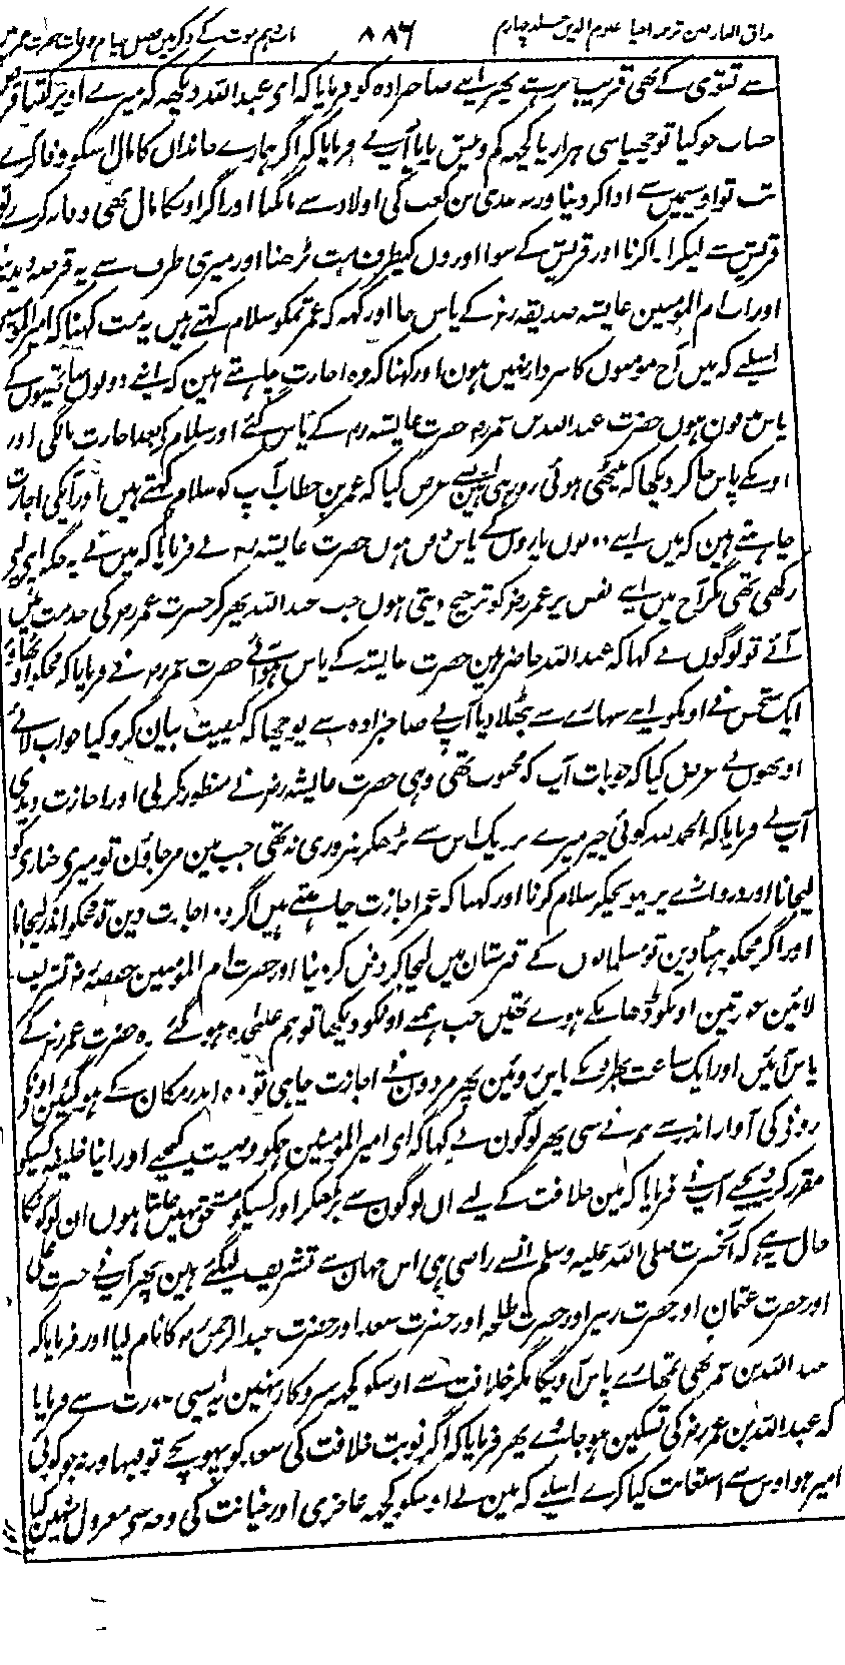 مذاق العارفین ترجمہ احیا علوم الدین جلد چہارم ۸۸۶
سے تقوی کے بھی قریب پھر اپنے صاحبزادہ کو فرمایا کہ ای عبد اللہ دیکھہ کہ میرے اوپر کتنا
حساب جو کیا تو چھیاسی ہزار یا کچھہ کم و بیش پایا آپنے فرمایا کہ اگر ہمارے خاندان کا مال اسکو وفا کرے
تب تو اوسیمیں سے ادا کر دینا ورنہ عدی بن کعب کی اولاد سے مانگنا اور اگر اونکا مال بھی وفا نہ کرے تو
قریش سے لیکر ادا کرنا اور قریش کے سوا اوروں کیطرف مت بڑھنا اور میری طرف سے یہ قرضہ دیدینا
اور اب ام المومنین عایشہ صدیقہ رضہ کے پاس جا اور کہہ کہ عمر تمکو سلام کہتے ہیں یہ مت کہنا کہ امیر المومنین
اسلیے کہ میں آج مومنوں کا سردار نہیں ہون اور کہنا کہ وہ اجازت چاہتے ہین کہ اپنے دونوں ساتھیوں کے
پاس مدفون ہوں حضرت عبد اللہ بن عمر رضہ حضرت عایشہ رضہ کے پاس گئے اور سلام کے بعد اجازت مانگی اور
اونکے پاس جا کر دیکھا کہ بیٹھی ہوئی رو رہی ہین عرض کیا کہ عمر بن خطاب آپ کو سلام کہتے ہیں اور آپکی اجازت
چاہتے ہین کہ میں اپنے دونوں یاروں کے پاس دفن ہوں حضرت عایشہ رضہ نے فرمایا کہ میں نے یہ جگہ اپنے لیے
رکھی تھی مگر آج میں اپنے نفس پر عمر رضہ کو ترجیح دیتی ہوں جب عبد اللہ پھر کر حضرت عمر رضہ کی خدمت میں
آئے تو لوگوں نے کہا کہ عبد اللہ حاضر ہین حضرت عایشہ کے پاس ہو آئے حضرت عمر رضہ نے فرمایا کہ مجھکو
ایک شخص نے اونکو اپنے سہارے سے بٹھلا دیا آپنے صاحبزادہ سے پوچھا کہ کیفیت بیان کرو کیا جواب لائے
اونھوں نے عرض کیا کہ جو بات آپ کو محبوب تھی وہی حضرت عایشہ رضہ نے منظور کر لی اور اجازت دیدی
آپنے فرمایا کہ الحمد للہ کوئی چیز میرے نزدیک اس سے بڑھکر ضروری نہ تھی جب مین مر جاؤن تو میری جنازی کو
لیجانا اور دروازے پر پہونچکر سلام کرنا اور کہنا کہ عمر اجازت چاہتے ہیں اگر وہ اجازت دین تو مجھکو اندر لیجانا
اور اگر مجھکو ہٹا دین تو مسلمانوں کے قبرستان میں لیجا کر دفن کر دینا اور حضرت ام المومنین حفصہ رضہ تشریف
لائین عورتین اونکو ڈھانکے ہوے تھیں جب ہمنے اونکو دیکھا تو ہم علیٰحدہ ہو گئے وہ حضرت عمر رضہ کے
پاس آئیں اور ایک ساعت بھر اونکے پاس روئین پھر مردون نے اجازت چاہی تو وہ اندر مکان کے ہو گئین اونکے
رونے کی آواز اندر سے ہم نے سنی پھر لوگون نے کہا کہ ای امیر المومنین ہمکو وصیت کیجیے اور اپنا خلیفہ کسیکو
مقرر کر دیجیے آپنے فرمایا کہ مین خلافت کے لیے ان لوگون سے بڑھکر اور کسیکو مستحق نہیں جانتا ہوں ان لوگونکا
حال یہ ہے کہ آنحضرت صلی اللہ علیہ وسلم انسے راضی ہی اس جہان سے تشریف لیگئے ہین پھر آپنے حضرت علی
اور حضرت عثمان اور حضرت زبیر اور حضرت طلحہ اور حضرت سعد اور حضرت عبد الرحمن رضہ کا نام لیا اور فرمایا کہ
عبد اللہ بن عمر بھی تمھارے پاس آویگا مگر خلافت سے اوسکو کچھہ سروکار نہین یہ ایسی صورت سے فرمایا
کہ عبد اللہ بن عمر رضہ کی تسکین ہو جاوے پھر فرمایا کہ اگر نوبت خلافت کی سعد کو پہونچے تو فبہا ورنہ جو کوئی
امیر ہو اوس سے استعانت کیا کرے اسلیے کہ مین نے اوسکو کچھہ عاجزی اور خیانت کی وجہ سے معزول نہین کیا